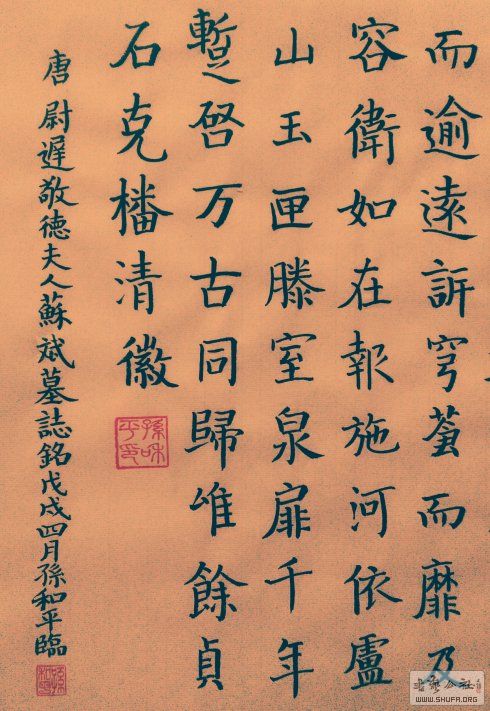 而逾遠訴穹蒼而靡及
容衛如在報施河依盧
山玉匣滕室泉扉千年
蹔啓万古同歸唯餘貞
石克橎清徽
孫和平印
唐尉遲敬德夫人蘇斌墓誌銘戊戌四月孫和平臨
WWW.SHUFA.ORG